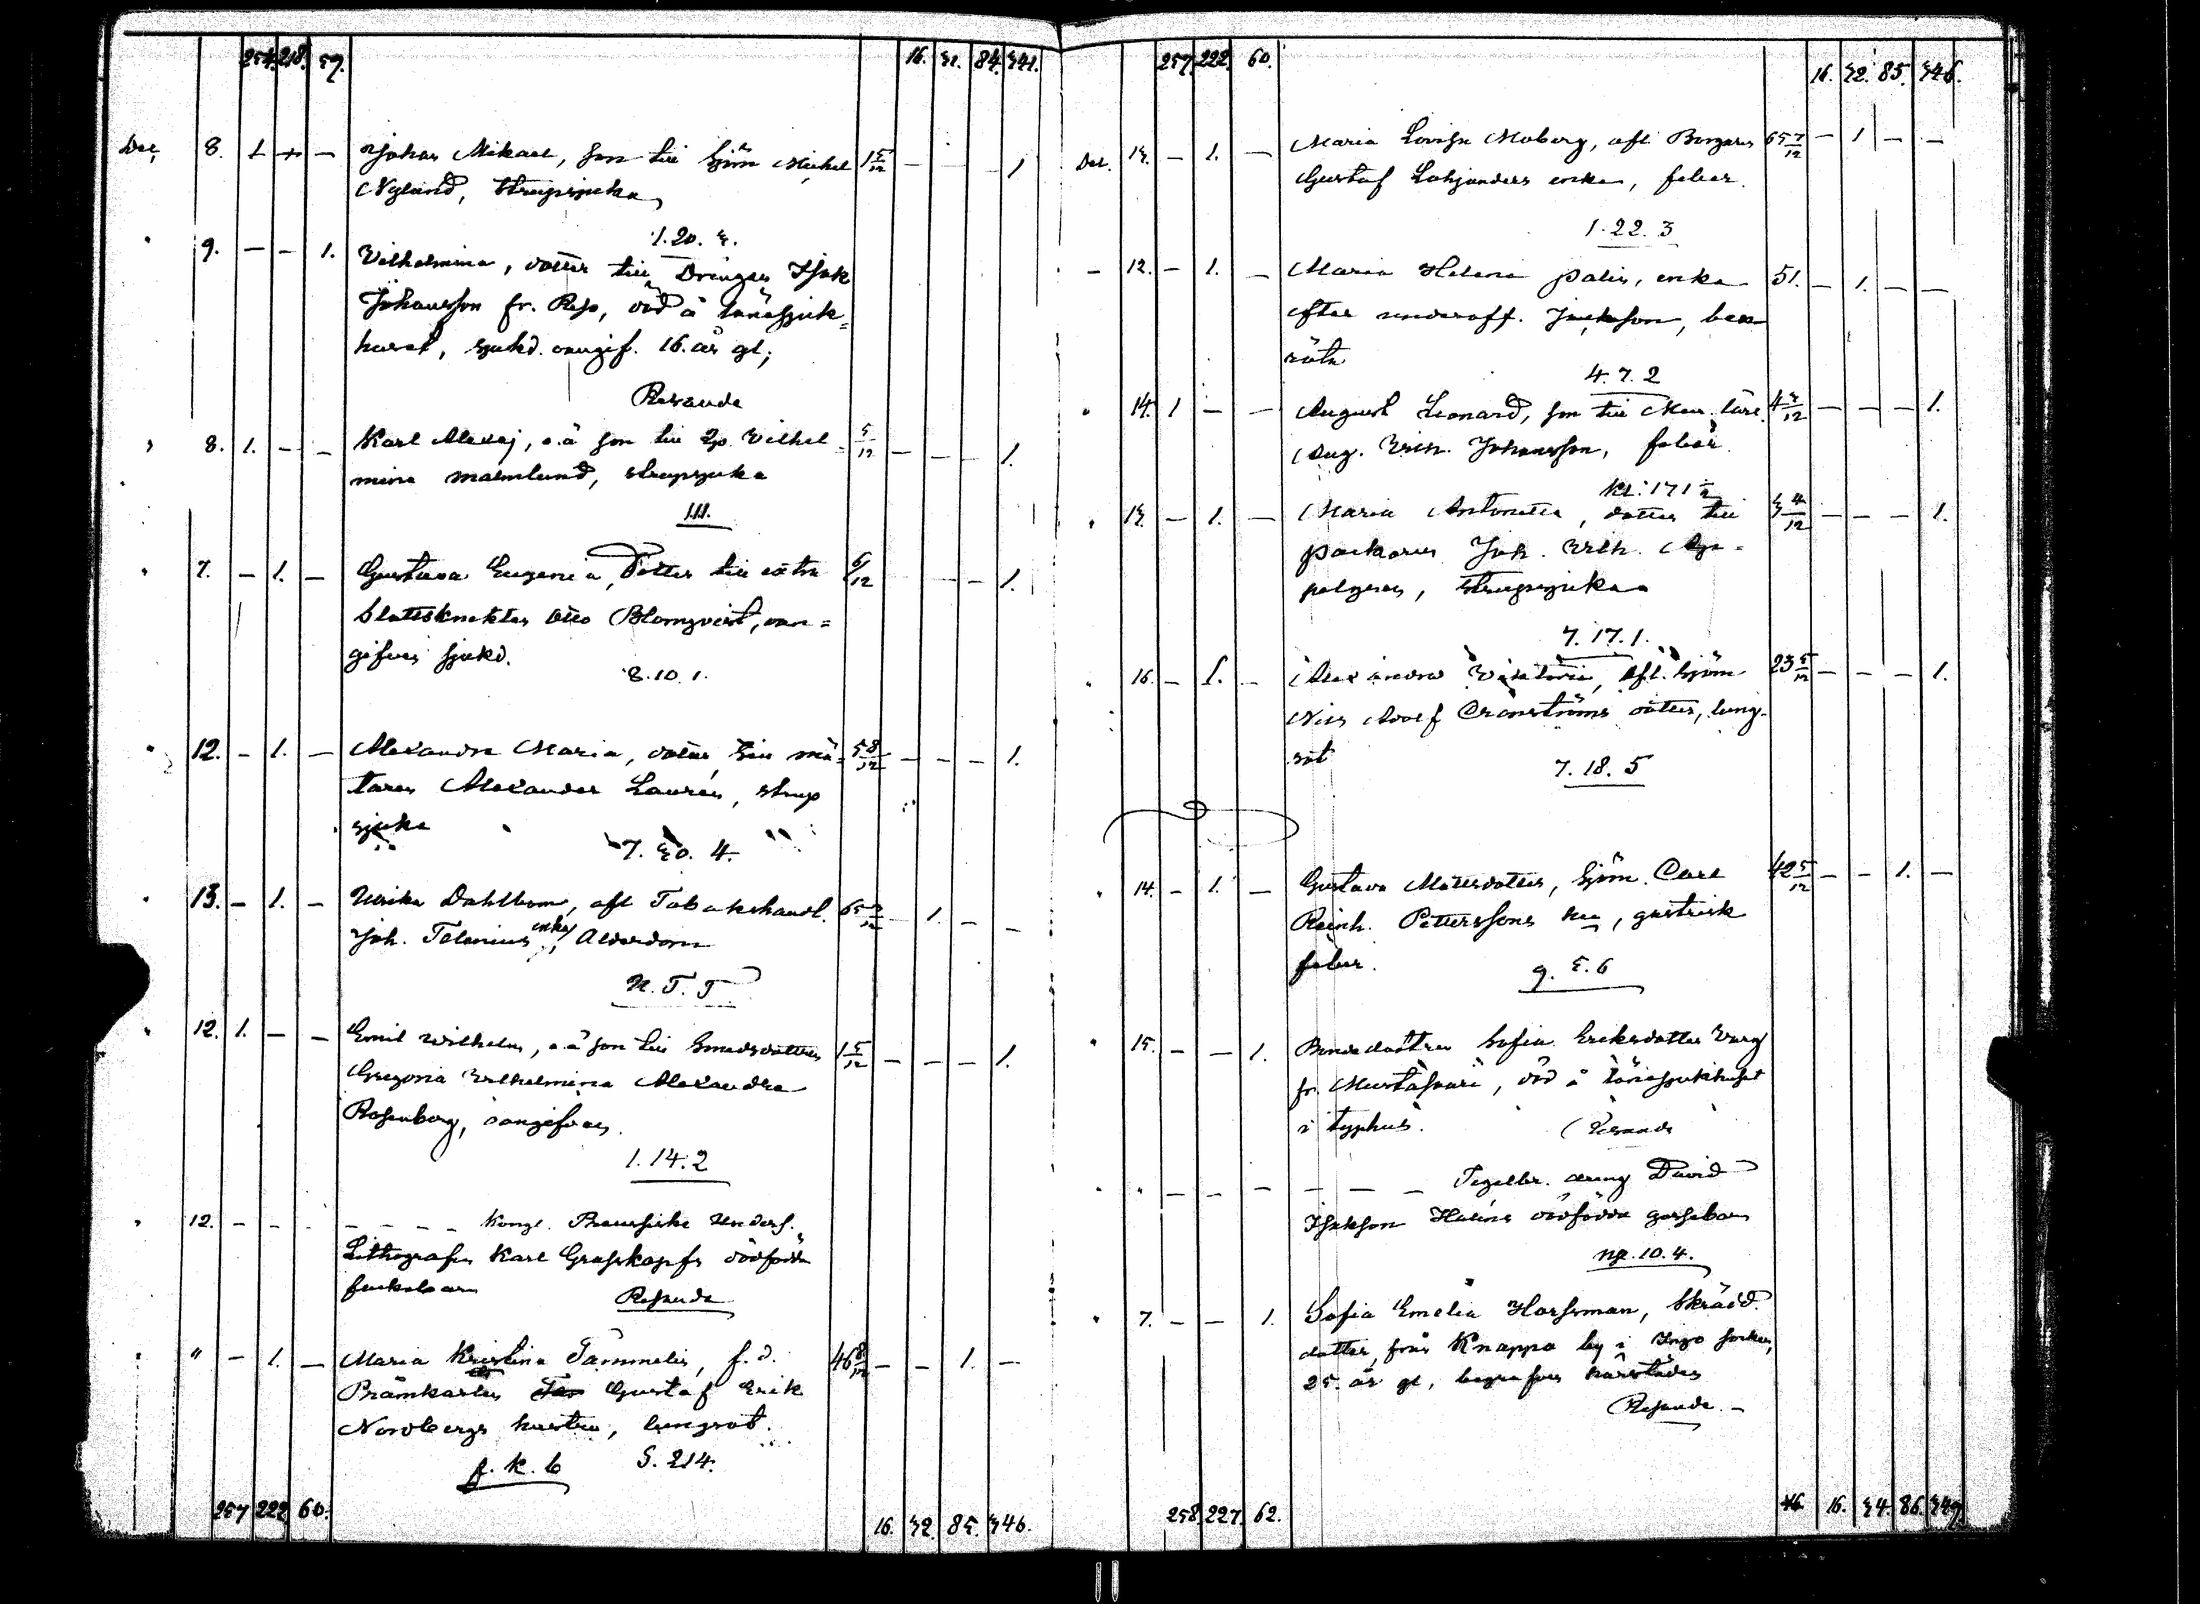 254. 218. 59. 16. 31. 84. 341.
Dec. 8. 1 + — Johan Mikael, son till Sjöm Mickel 1 5/12 — — — 1
Nylund, strupsjuka
1. 20. 3.
" 9. — — 1. Vilhelmina, dotter till Drängen Isak
Johansson fr. Reso, död å länesjuk=
huset, sjukd. oangif. 16. år gl;
Resande
" 8. 1. — — Karl Alexej, o.ä son till Qp. Vilhel- 5/12 — — — 1.
mina Malmlund, strupsjuka
111.
" 7. — 1. — Gustava Eugenia, Dotter till extra 6/12 — 1.
Slottsknekten Otto Blomqvist, oan=
gifven sjukd.
8. 10. 1.
" 12. — 1. — Alexandra Maria, dotter till mä- 5 8/12 — — — 1.
taren Alexander Laurén, strup
sjuka
7. 30. 4.
" 13. — 1. — Ulrika Dahlbom, afl Tobakshandl. 65 — 1. — —
Joh. Telenius enka, Ålderdom
N. T. T
" 12. 1. — — Emil Wilhelm, o.ä son till Smedsdottren 1 5/12 — — — 1.
Gregoria Vilhelmina Alexandra
Rosenberg, oangifven.
1. 14. 2
" 12. — — — — — — Kongl. Preussiske Unders.
Lithografen Karl Grosskopfs dödfödda
flickebarn
Resande
" " — 1. — Maria Kristina Tammelin, f.d. 46 8/12 — — 1. —
Pråmkarlen Gustaf Erik
Nordbergs hustru, lungsot.
f. K. b S. 214.
257 222 60. 16. 32. 85. 346.
257. 222. 60. 16. 32. 85. 346.
Dec. 13. — 1. — Maria Lovisa Moberg, afl. Borgaren 65 7/12 — 1 — —
Gustaf Lohjanders enka, feber.
1. 22. 3
— 12. — 1. — Maria Helena Palin, enka 51. — 1. — —
efter underoff. Jackson, ben
röta
4. 7. 2
" 14. 1 — — August Leonard, son till 4 3/12 — — — 1.
Aug. Vilh. Johansson, feber
Kl. 171 1/2
" 13. — 1. — Maria Antonetta, dotter till 3 4/12 — — — 1.
packaren Joh. Vilh. Ap-
pelgren, strupsjuka
7. 17. 1.
" 16. — 1. — Alexandra Viktoria, afl. Sjöm 23 5/12 — — — 1.
Nils Adolf Cronströms dotter, lung-
sot
7. 18. 5
" 14. — 1. — Gustava Mattsdotter, Sjöm. Carl 42 5/12 — — 1. —
Reinh. Petterssons hu, gastrisk
feber.
9. 5. 6
" 15. — — 1. Bondedottren Sofia Eriksdotter Varg
fr. Mustasaari, död å länesjukhuset
i typhus. Resande
" " — — — — — — Tegelbr. dräng David
Isakson Haléns dödfödda gossebarn
np. 10. 4.
" 7. — — 1. Sofia Emelia Horsman, Skrädd.
dotter, från Knappa by i Ingo socken,
25. år gl, begrafven härstädes
Resande. —
258. 227. 62. 16. 16. 34. 86. 349.